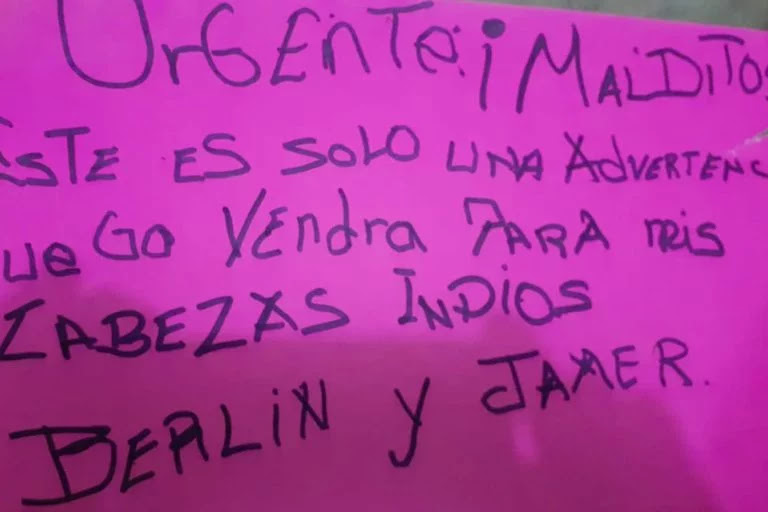 UrGENTE: ¡ MALDITOS
ESTE ES SOLO UNA ADVERTENC
UeGO VENdra PARA MIS
ZABEZAS INDIOS
BERLIN y JAMER.